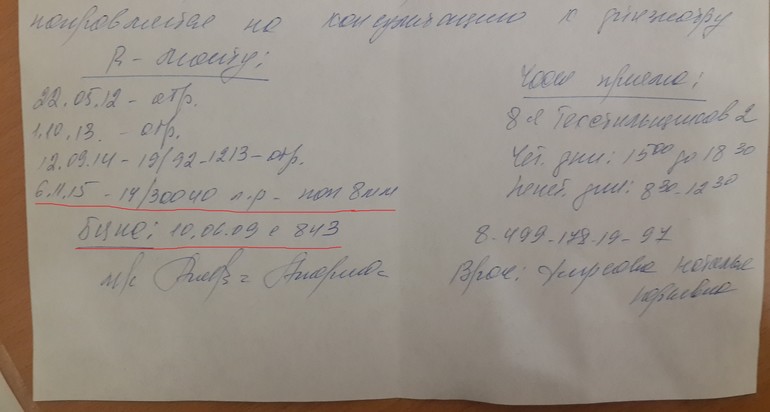 направляется на консультацию к фтизиатру
R - манту:
22.05.12 - отр.
1.10.13. - отр.
12.09.14 - 19/92-1213 - отр.
6.11.15 - 14/30040 л.р - пап 8мм
БЦЖ: 10.06.09 с 843
м/с
Часы приема:
8я Текстильщиков 2
Чет. дни: 15 00 до 18 30
Нечет. дни: 8 30 - 12 30
8-499-178-19-97
Врач: Наталья